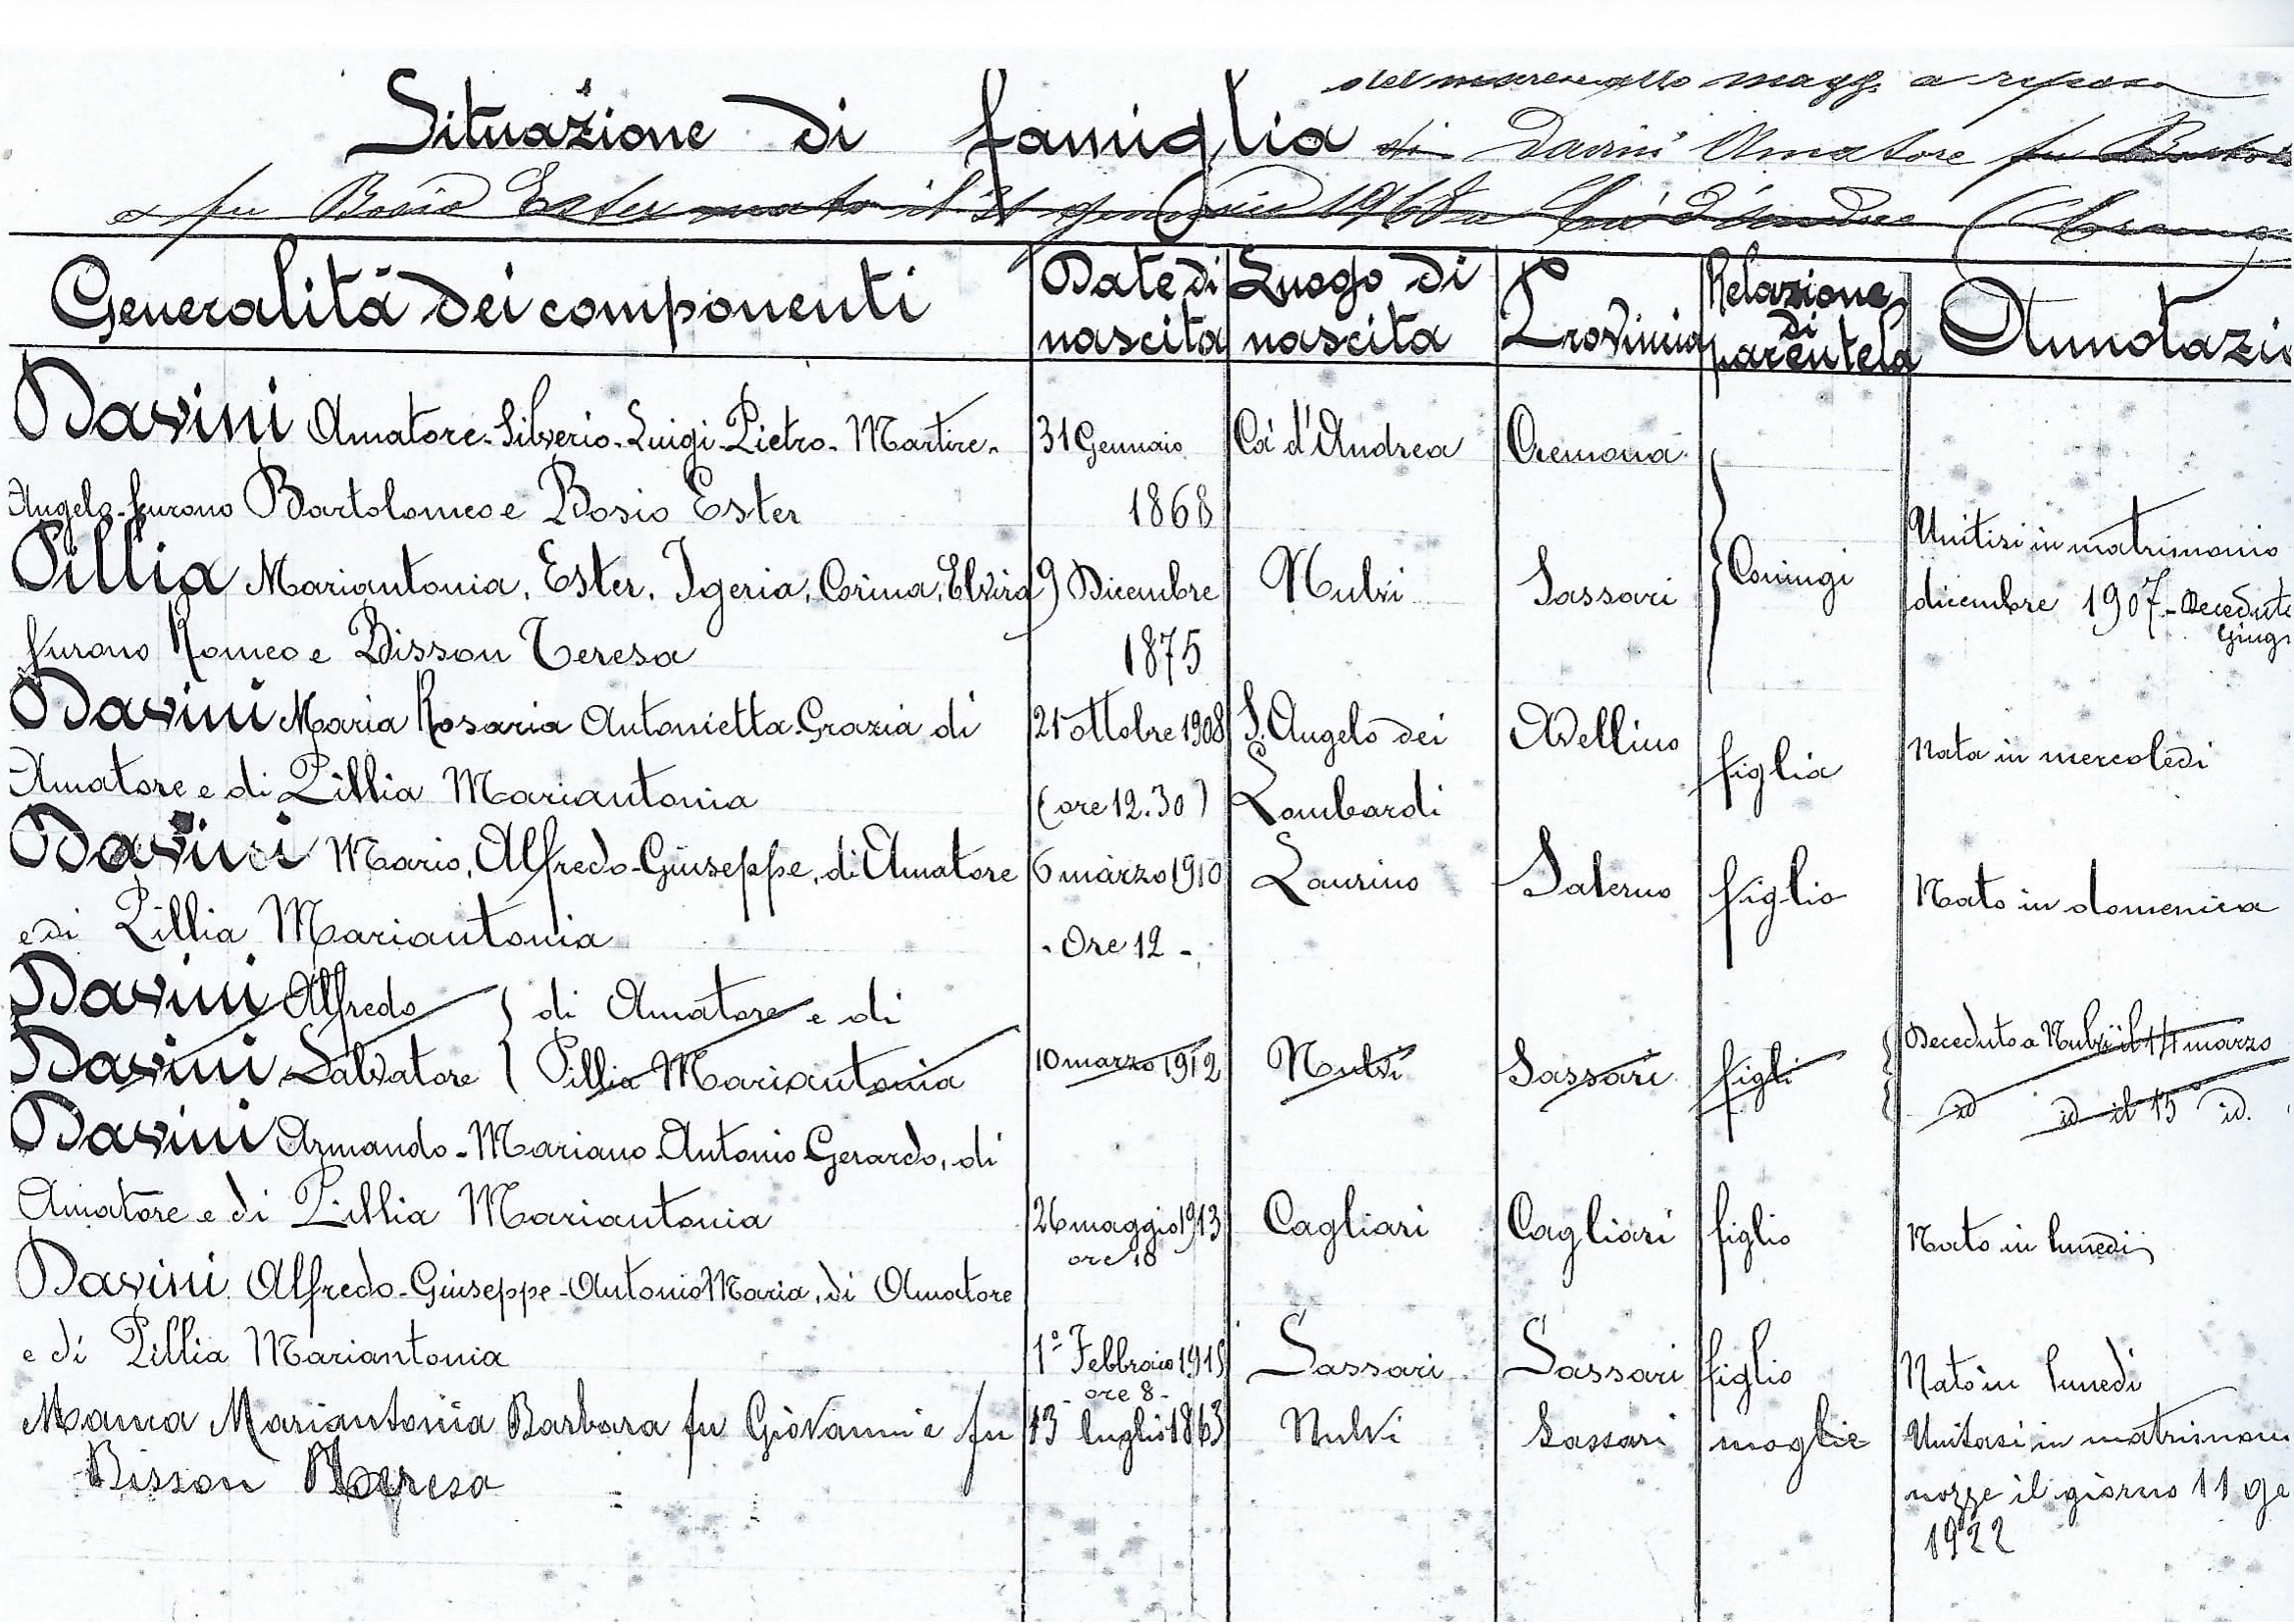 del maresciallo magg. a riposo
Situazione di famiglia di Davini Amatore fu Bartolo
e fu Bosio Ester nato il 31 gennaio 1968 a Cà d'Andrea (Cremona
Generalità dei componenti
Date di nascita
Luogo di nascita
Provincia
Relazione di parentela
Annotazi
Davini Amatore-Silverio-Luigi-Pietro-Martire-
31 Gennaio
Cà d'Andrea
Cremona
Angelo-furono Bartolomeo e Bosio Ester
1868
Pillia Mariantonia, Ester, Igeria, Corina, Elvira
9 Dicembre
Nulvi
Sassari
Coniugi
Unitisi in matrimonio
dicembre 1907-Decedute
Giug
furono Romeo e Bisson Teresa
1875
Davini Maria Rosaria Antonietta Grazia di
21 ottobre 1908
S. Angelo dei
Avellino
figlia
Nata in mercoledì
Amatore e di Pillia Mariantonia
(ore 12.30)
Lombardi
Davini Mario, Alfredo-Giuseppe, di Amatore
6 marzo 1910
Laurino
Salerno
figlio
Nato in domenica
e di Pillia Mariantonia
- Ore 12 -
Davini Alfredo } di Amatore e di
Davini Salvatore } Pillia Mariantonia
10 marzo 1912
Nulvi
Sassari
figli
Deceduto a Nulvi il 14 marzo
id id il 15 id.
Davini Armando-Mariano-Antonio-Gerardo, di
Amatore e di Pillia Mariantonia
26 maggio 1913
ore 18
Cagliari
Cagliari
figlio
Nato in lunedì
Davini Alfredo-Giuseppe-Antonio Maria, di Amatore
e di Pillia Mariantonia
1° Febbraio 1915
ore 8-
Sassari
Sassari
figlio
Nato in lunedì
Manca Mariantonia Barbara fu Giovanni e fu
13 luglio 1863
Nulvi
Sassari
moglie
Unitasi in matrimoni
Bisson Teresa
nozze il giorno 11 ge
1922